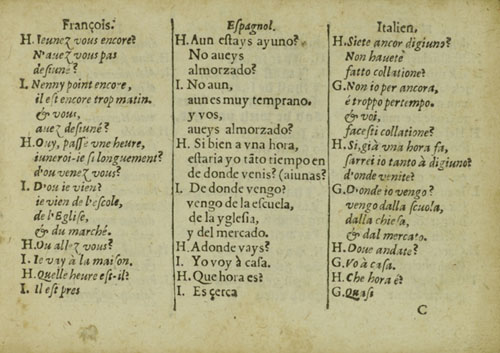 François.
H. Ieunez vous encore?
N'auez vous pas
deſiuné?
I. Nenny point encore,
il eſt encore trop matin.
& vous,
auez deſiuné?
H. Ouy, paſſe vne heure,
iuneroi-ie ſi longuement?
d'ou venez vous?
I. D'ou ie vien?
ie vien de l'eſcole,
de l'Egliſe,
& du marché.
H. Ou allez vous?
I. Ie vay à la maiſon.
H. Quelle heure eſt-il?
I. Il eſt pres
Eſpagnol.
H. Aun eſtays ayuno?
No aueys
almorzado?
I. No aun,
aun es muy temprano.
y vos,
aueys almorzado?
H. Si bien a vna hora,
eſtaria yo tãto tiempo en
de donde venis? (aiunas?
I. De donde vengo?
vengo de la eſcuela,
de la ygleſia,
y del mercado.
H. Adonde vays?
I. Yo voy à caſa.
H. Que hora es?
I. Es çerca
Italien.
H. Siete ancor digiuno?
Non hauete
fatto collatione?
G. Non io per ancora,
é troppo pertempo.
& voi,
faceſti collatione?
H. Si, già vna hora fa,
ſarrei io tanto à digiuno?
d'onde venite?
G. D'onde io vengo?
vengo dalla ſcuola,
dalla chieſa,
& dal mercato.
H. Doue andate?
G. Vo à caſa.
H. Che hora é?
G. Quaſi
C